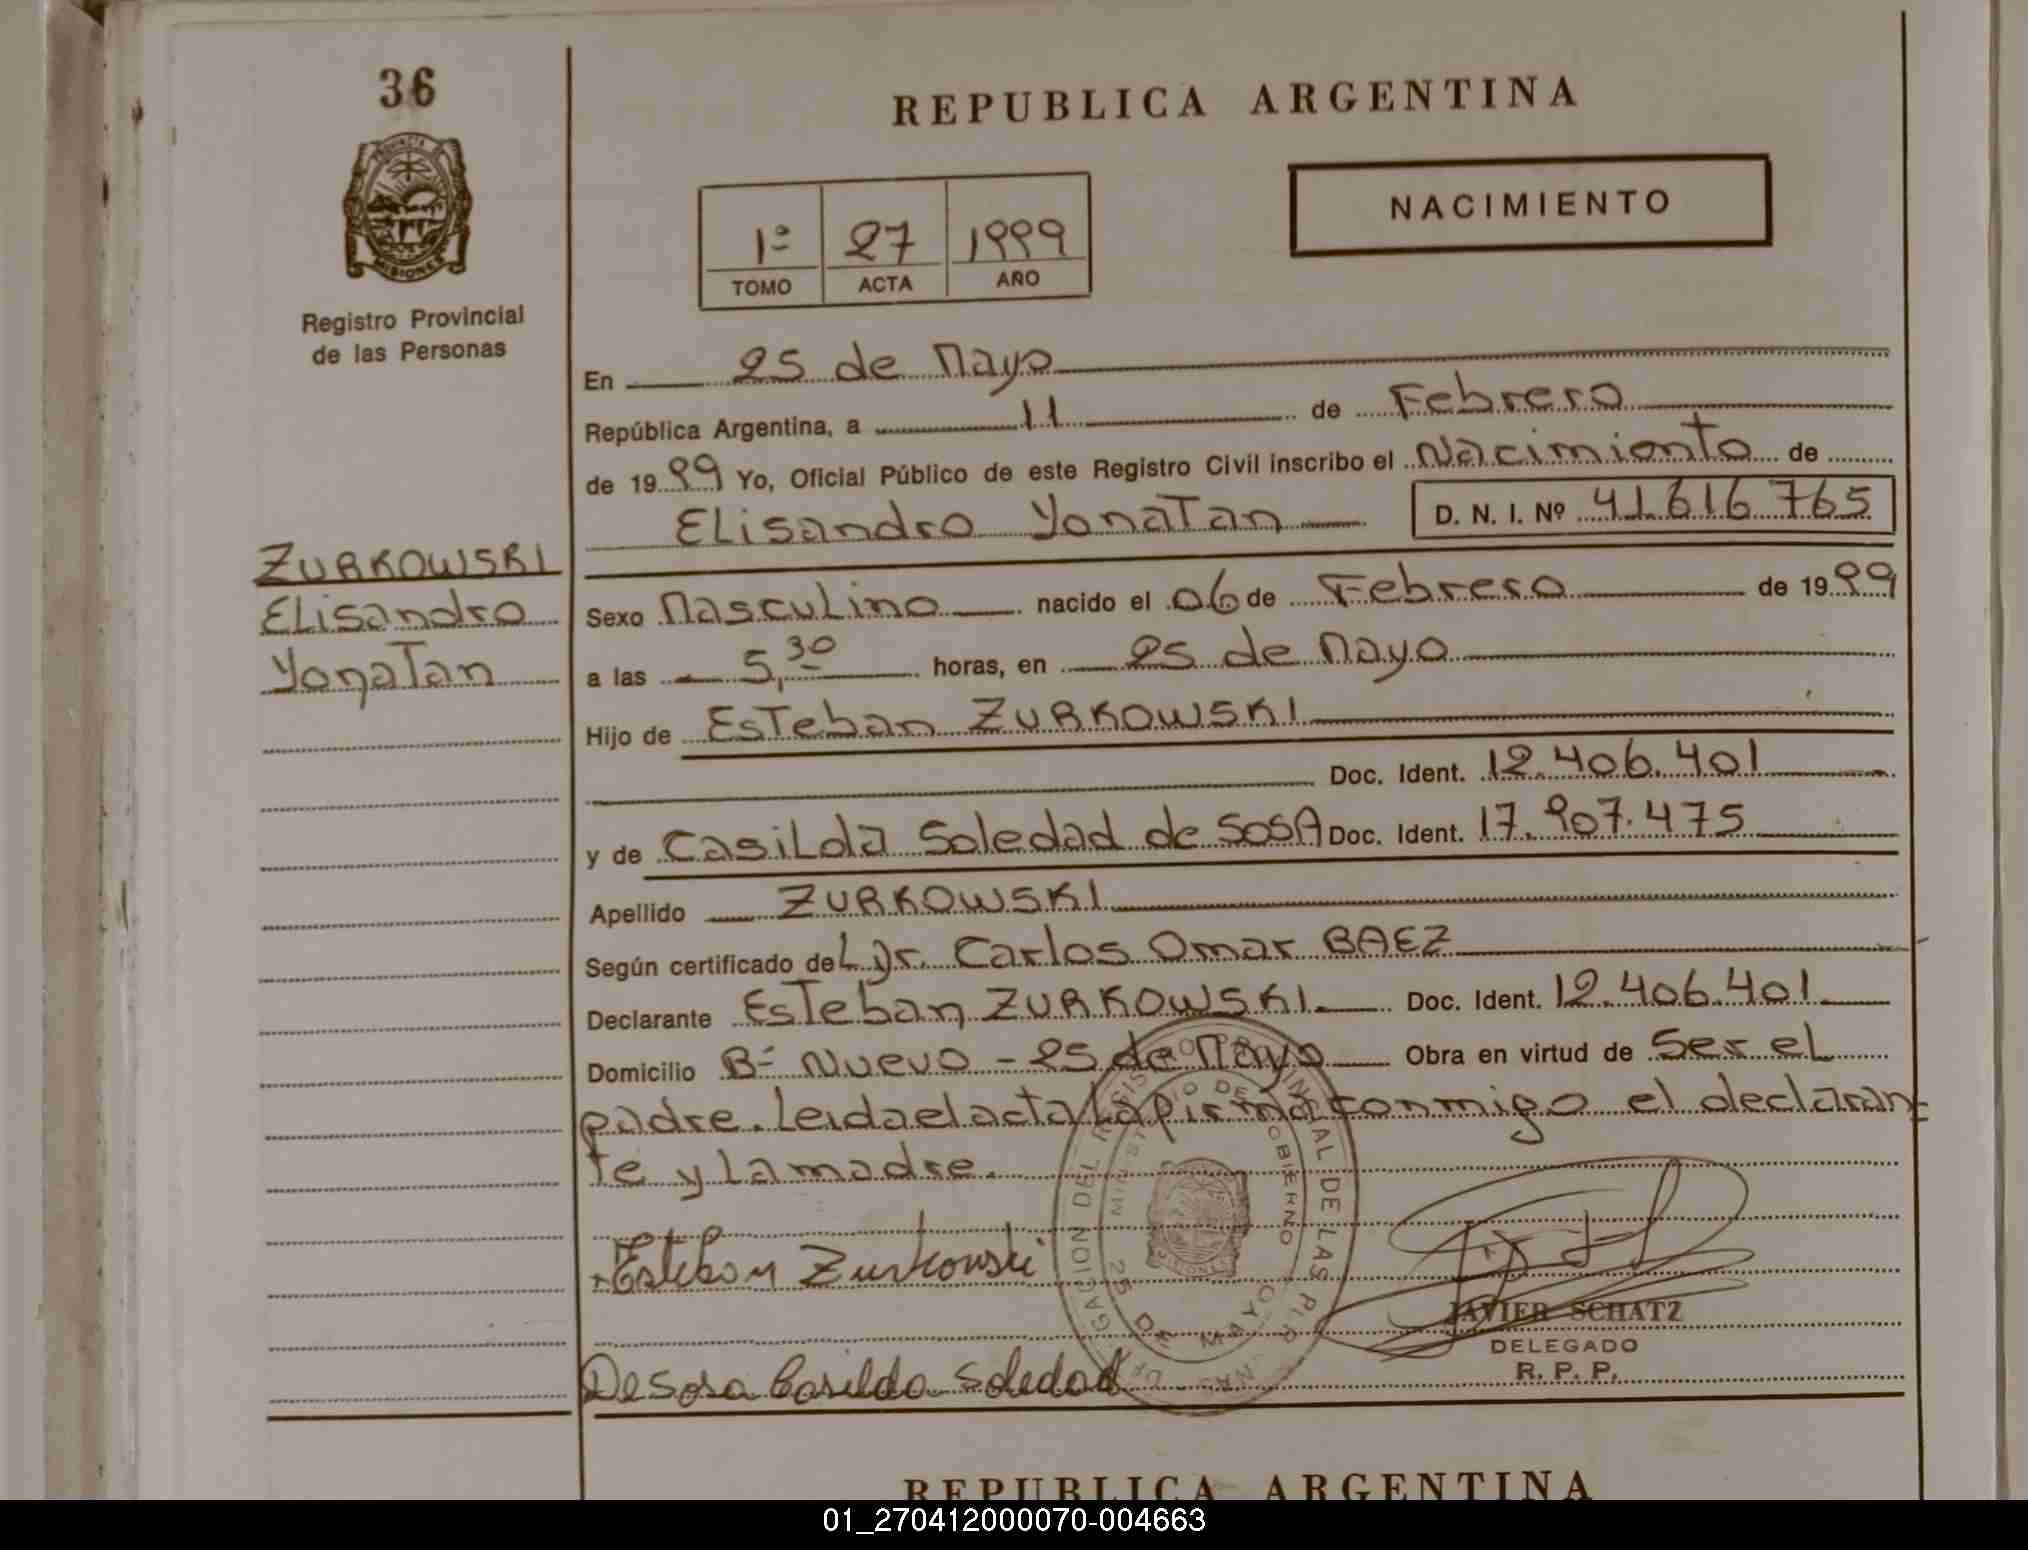 36
PROVINCIA DE
MISIONES
Registro Provincial
de las Personas
REPUBLICA ARGENTINA
NACIMIENTO
1º 27 1999
TOMO ACTA AÑO
En 25 de Mayo
República Argentina, a 11 de Febrero
de 1999 Yo, Oficial Público de este Registro Civil inscribo el Nacimiento de
Elisandro Yonatan D. N. I. Nº 41.616.765
ZURKOWSKI
Elisandro
Yonatan
Sexo Masculino nacido el 06 de Febrero de 1999
a las 5,30 horas, en 25 de Mayo
Hijo de Esteban ZURKOWSKI
Doc. Ident. 12.406.401
y de Casilda Soledad de SOSA Doc. Ident. 17.907.475
Apellido ZURKOWSKI
Según certificado del Dr. Carlos Omar BAEZ
Declarante Esteban ZURKOWSKI Doc. Ident. 12.406.401
Domicilio Bº Nuevo - 25 de Mayo Obra en virtud de Ser el
padre. Leida el acta la firma conmigo el declaran-
te y la madre.
Esteban Zurkowski
De Sosa Casilda Soledad
DELEGACION DEL REGISTRO PROVINCIAL DE LAS PERSONAS
MINISTERIO DE GOBIERNO
25 DE MAYO
JAVIER SCHATZ
DELEGADO
R. P. P.
REPUBLICA ARGENTINA
01_270412000070-004663